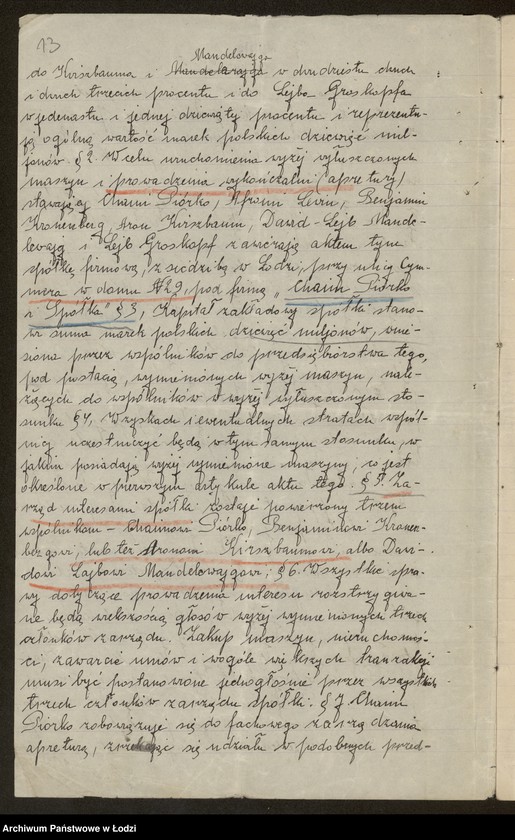 13
Mandelwajga
do Kirszbauma i Mandelwajga w dwudziestu dwuch
i dwuch trzecich procentu i do Lejba Groskopfa
w jedenastu i jednej dziewiąty procentu i reprezentu-
ją ogólną wartość marek polskich dziewięć mil-
jonów. § 2. W celu uruchomienia wyżej wyłuszczonych
maszyn i prowadzenia wykończalni (apretury)
stawający Chaim Piórko, Benjamin
Kronenberg, Aron Kirszbaum, Dawid-Lejb Mande-
lwajg i Lejb Groskopf zawierają aktem tym
spółkę firmową, z siedzibą w Łodzi, przy ulicy Cym-
mera w domu № 29, pod firmą „Chaim Piórko
i Spółka" § 3, Kapitał zakładowy spółki stano-
wi suma marek polskich dziewięć miljonów, wnie-
siona przez wspólników do przedsiębiorstwa tego,
pod postacią, wymienionych wyżej maszyn, nale-
żących do wspólników w wyżej wyłuszczonym sto-
sunku § 4, W zyskach i ewentualnych stratach wspól-
nicy uczestniczyć będą w tym samym stosunku, w
jakim posiadają wyżej wymienione maszyny, co jest
określone w pierwszym artykule aktu tego. § 5. Za-
rząd interesami spółki zostaje powierzony trzem
wspólnikom – Chaimowi Piórko, Benjaminowi Kronen-
bergowi, lub też Aronowi Kirszbaumowi, albo Dawi-
dowi Lajbowi Mandelowajgowi; § 6. Wszystkie spra-
wy dotyczące prowadzenia interesu rozstrzygwa-
ne będą większością głosów wyżej wymienionych trzech
członków zarządu. Zakup maszyn, nieruchomoś-
ci, zawarcie umów i wogóle większych tranzakcji
musi być postanowione jednogłośnie przez wszystkich
trzech członków zarządu spółki. § 7 Chaim
Piórko zobowiązuje się do fachowego zarządzania
apreturą, zrzekając się udziału w podobnych przed-
Archiwum Państwowe w Łodzi